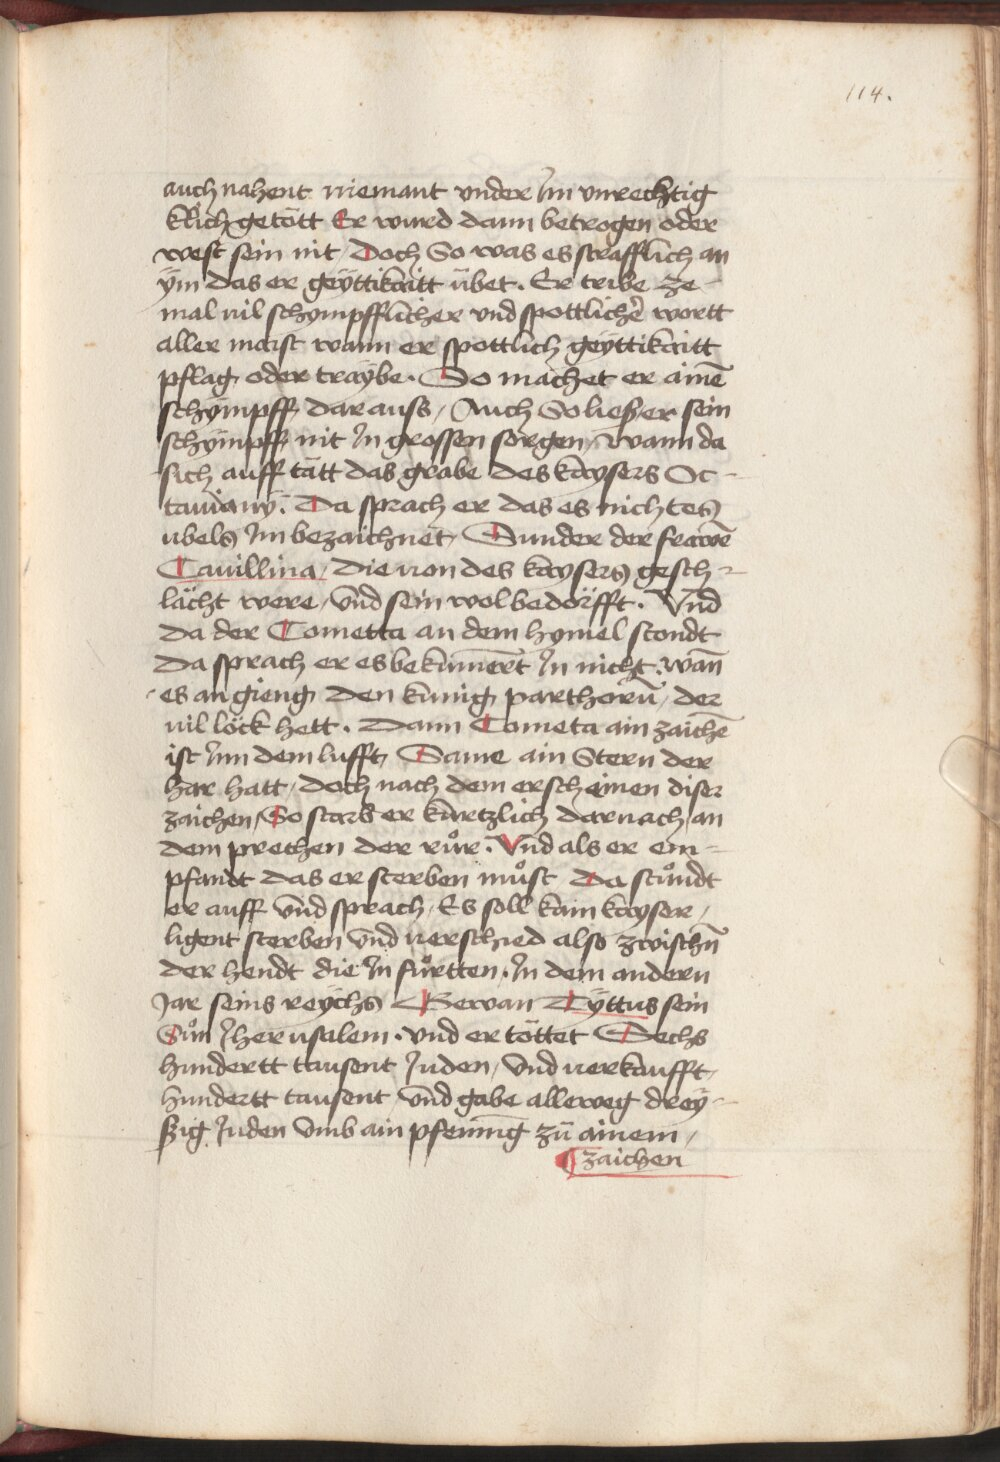 114.
auch nahent niemant vnder Im vnrechtig
klich getött Er wurd dann betrogen oder
west sein nit, Doch So was es strafflich an
ÿm das er geÿttikaitt übet. Er tribe ze
mal vil schympfflicher vnd spottlichē wortt
aller maist wann er spottlich geÿttikaitt
pflag oder traÿbe. So machet er ainē
schÿmpff dar auss, Auch So ließ er sein
schÿmpff nit In grossen sorgen, Wann da
sich auff tätt das grabe des kaysers Oc-
tauianÿ. Da sprach er das es nichtes
ubels Im bezaichnet, Sunder der frawē
Cauillina, die von des kaysers gesch-
lächt were, vnd sein wol bedörfft. Vnd
da der Cometta an dem hymel stondt
Da sprach er es bekümert In nicht, wan̄
es an gieng den kunig parthorū, der
vil löck hett. Dann Cometa ain zaichē
ist Inn dem lufft, Same ain Stern der
har hatt, doch nach dem erscheinen diser
zaichen, So starb er kurtzlich darnach an
dem prechen der růr. Vnd als er em-
pfandt das er sterben můst, Da stůndt
er auff vnd sprach, Es soll kain kayser,
ligent sterben vnd verschied also zwischn̄
der hendt die In fůrtten. In dem andern
Jar seins reÿchs Gewan Tÿttus sein
Sůn Jherusalem. vnd er töttet Sechs
hundertt tausent Juden, vnd verkaufft,
hundertt tausent vnd gabe alleweg dreÿ-
ßig Juden vmb ain pfennīg zū ainem,
zaichen